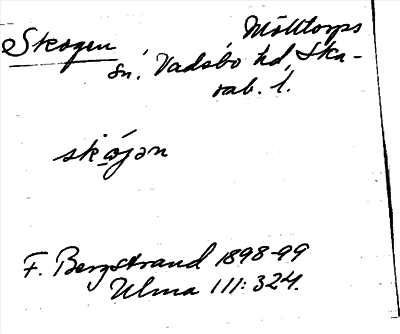 Skogen Mölltorps
sn. Vadsbo hd, Ska-
rab. l.
skógən
F. Bergstrand 1898-99
Ulma 111: 324.